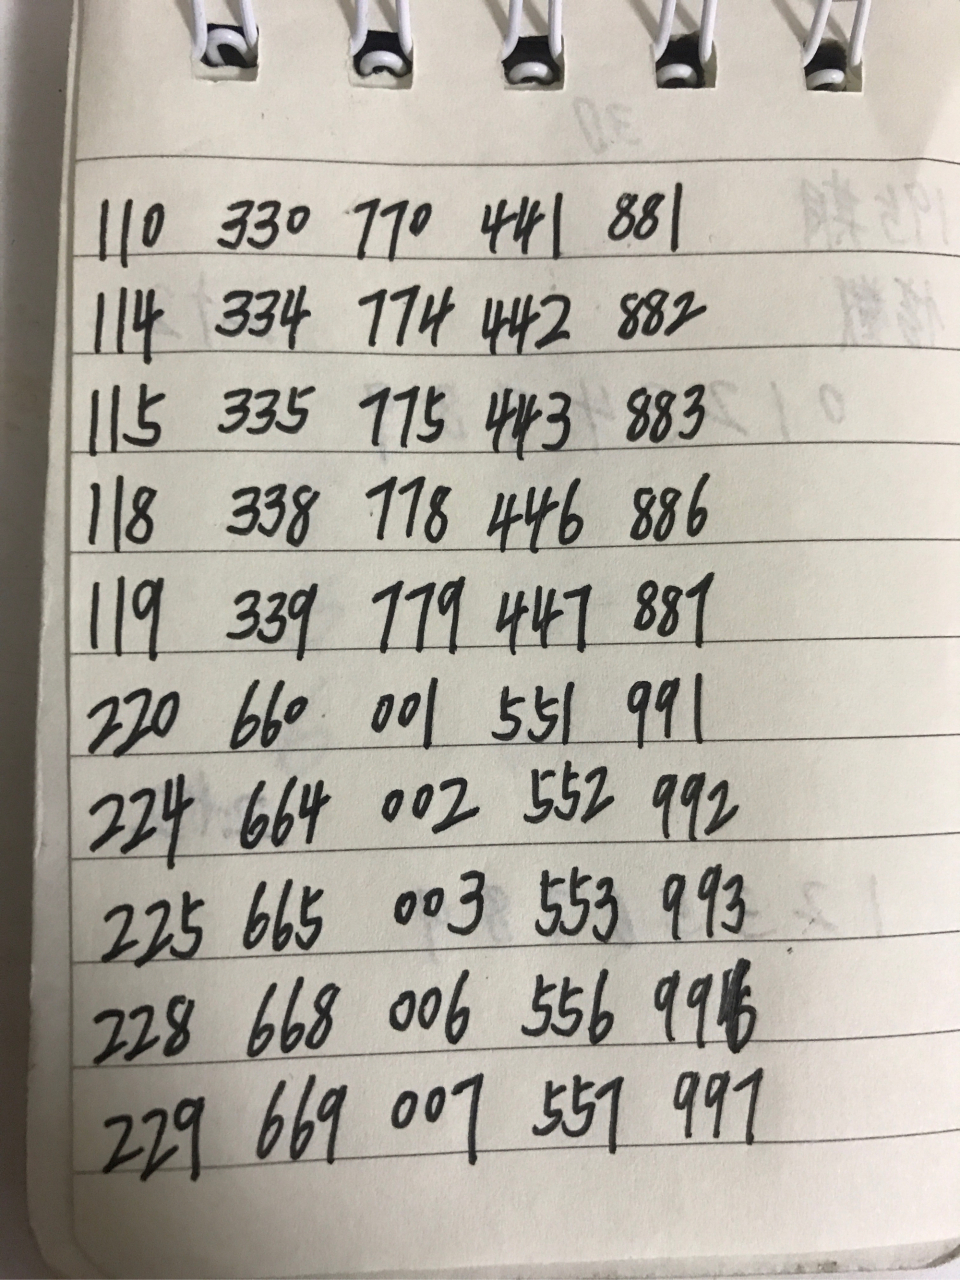 110 330 770 441 881
114 334 774 442 882
115 335 775 443 883
118 338 778 446 886
119 339 779 447 887
220 660 001 551 991
224 664 002 552 992
225 665 003 553 993
228 668 006 556 996
229 669 007 557 997